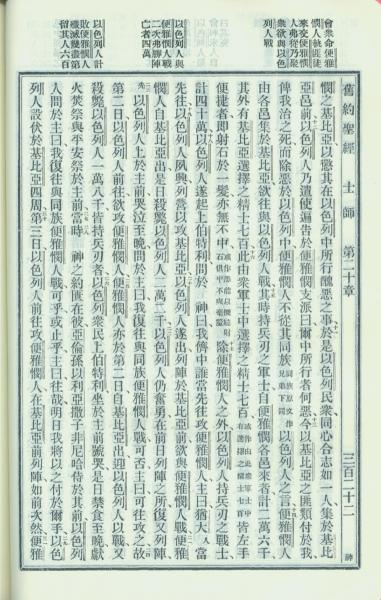 會衆命便雅
憫人執匪徒
來交便雅憫
人弗從乃聚
衆欲與以色
列人戰
以色列人與
便雅憫人戰
二次弗勝陣
亡者四萬
以色列人計
敗便雅憫人
殲滅幾盡第
留其人六百
舊約聖經 士師 第二十章 三百二十二 神
憫之基比亞以懲其在以色列中所行醜惡之事於是以色列民衆同心合志如一人集於基比
亞邑前以色列人乃遣使徧告於便雅憫支派曰爾中所行者何惡今以基比亞之匪類付於我
俾我治之死而除惡於以色列中便雅憫人不從其同族以色列人之言便雅憫人
由各邑集於基比亞欲往與以色列人戰其時持兵刃之軍士自便雅憫各邑來者計二萬六千
其外有基比亞選擇之精士七百此由衆軍士中選擇之精士七百皆左手
便捷者即射石於一髮亦無不中除便雅憫人之外以色列人持兵刃之戰士
計四十萬以色列人遂起上伯特利問於神曰我儕中誰當先往攻便雅憫人主曰猶大人當
先往以色列人夙興列營以攻基比亞以色列人遂出列陣於基比亞前欲與便雅憫人戰便雅
憫人自基比亞出是日殺以色列人二萬二千以色列人仍奮勇在前日列陣之所復又列陣
以色列人上於主前哭泣至晚問於主曰我復往與同族便雅憫人戰可否主曰可往攻之故
第二日以色列人前往欲攻便雅憫人便雅憫人亦於第二日自基比亞出迎以色列人以戰又
殺斃以色列人一萬八千皆持兵刃者以色列衆民上伯特利坐於主前號哭是日禁食至晚獻
火焚祭與平安祭於主前當時神之約匱在彼亞倫孫以利亞撒子非尼哈侍於其前以色列
人問於主曰我復往與同族便雅憫人戰可乎或止乎主曰往哉明日我將以之付於爾手以色
列人設伏於基比亞四周第三日以色列人前往攻便雅憫人在基比亞前列陣如前次然便雅